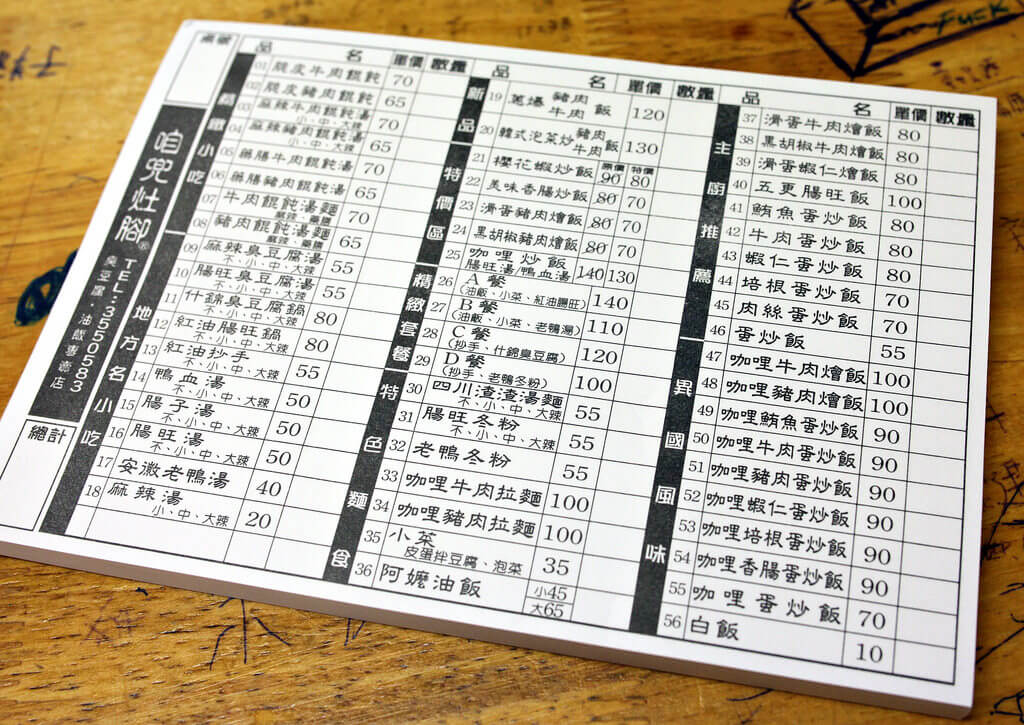 桌號
總計
咱兜灶腳®
TEL:3550583
臭豆腐・油飯專賣店
品 名 單價 數量
精緻小吃
01 脆皮牛肉餛飩 70
02 脆皮豬肉餛飩 65
03 麻辣牛肉餛飩湯 70
小、中、大辣
04 麻辣豬肉餛飩湯 65
小、中、大辣
05 藥膳牛肉餛飩湯 70
06 藥膳豬肉餛飩湯 65
07 牛肉餛飩湯麵 70
麻辣、藥膳
08 豬肉餛飩湯麵 65
麻辣、藥膳
地方名小吃
09 麻辣臭豆腐湯 55
不、小、中、大辣
10 腸旺臭豆腐湯 55
不、小、中、大辣
11 什錦臭豆腐鍋 80
不、小、中、大辣
12 紅油腸旺鍋 80
不、小、中、大辣
13 紅油抄手 55
不、小、中、大辣
14 鴨血湯 50
不、小、中、大辣
15 腸子湯 50
不、小、中、大辣
16 腸旺湯 50
不、小、中、大辣
17 安徽老鴨湯 40
18 麻辣湯 20
小、中、大辣
品 名 單價 數量
新品特價區
19 蔥爆豬肉牛肉飯 120
20 韓式泡菜炒豬肉牛肉飯 130
21 櫻花蝦炒飯 原價90 特價80
22 美味香腸炒飯 80 70
23 滑蛋豬肉燴飯 80 70
24 黑胡椒豬肉燴飯 80 70
25 咖哩炒飯 140 130
腸旺湯/鴨血湯
精緻套餐
26 A餐 140
(油飯、小菜、紅油腸旺)
27 B餐 110
(油飯、小菜、老鴨湯)
28 C餐 120
(抄手、什錦臭豆腐)
29 D餐 100
(抄手、老鴨冬粉)
特色麵食
30 四川渣渣湯麵 55
不、小、中、大辣
31 腸旺冬粉 55
不、小、中、大辣
32 老鴨冬粉 55
33 咖哩牛肉拉麵 100
34 咖哩豬肉拉麵 100
35 小菜 35
皮蛋拌豆腐、泡菜
36 阿嬤油飯 小45
大65
品 名 單價 數量
主廚推薦
37 滑蛋牛肉燴飯 80
38 黑胡椒牛肉燴飯 80
39 滑蛋蝦仁燴飯 80
40 五更腸旺飯 100
41 鮪魚蛋炒飯 80
42 牛肉蛋炒飯 80
43 蝦仁蛋炒飯 80
44 培根蛋炒飯 70
45 肉絲蛋炒飯 70
46 蛋炒飯 55
異國風味
47 咖哩牛肉燴飯 100
48 咖哩豬肉燴飯 100
49 咖哩鮪魚蛋炒飯 90
50 咖哩牛肉蛋炒飯 90
51 咖哩豬肉蛋炒飯 90
52 咖哩蝦仁蛋炒飯 90
53 咖哩培根蛋炒飯 90
54 咖哩香腸蛋炒飯 90
55 咖哩蛋炒飯 70
56 白飯 10
FUCK